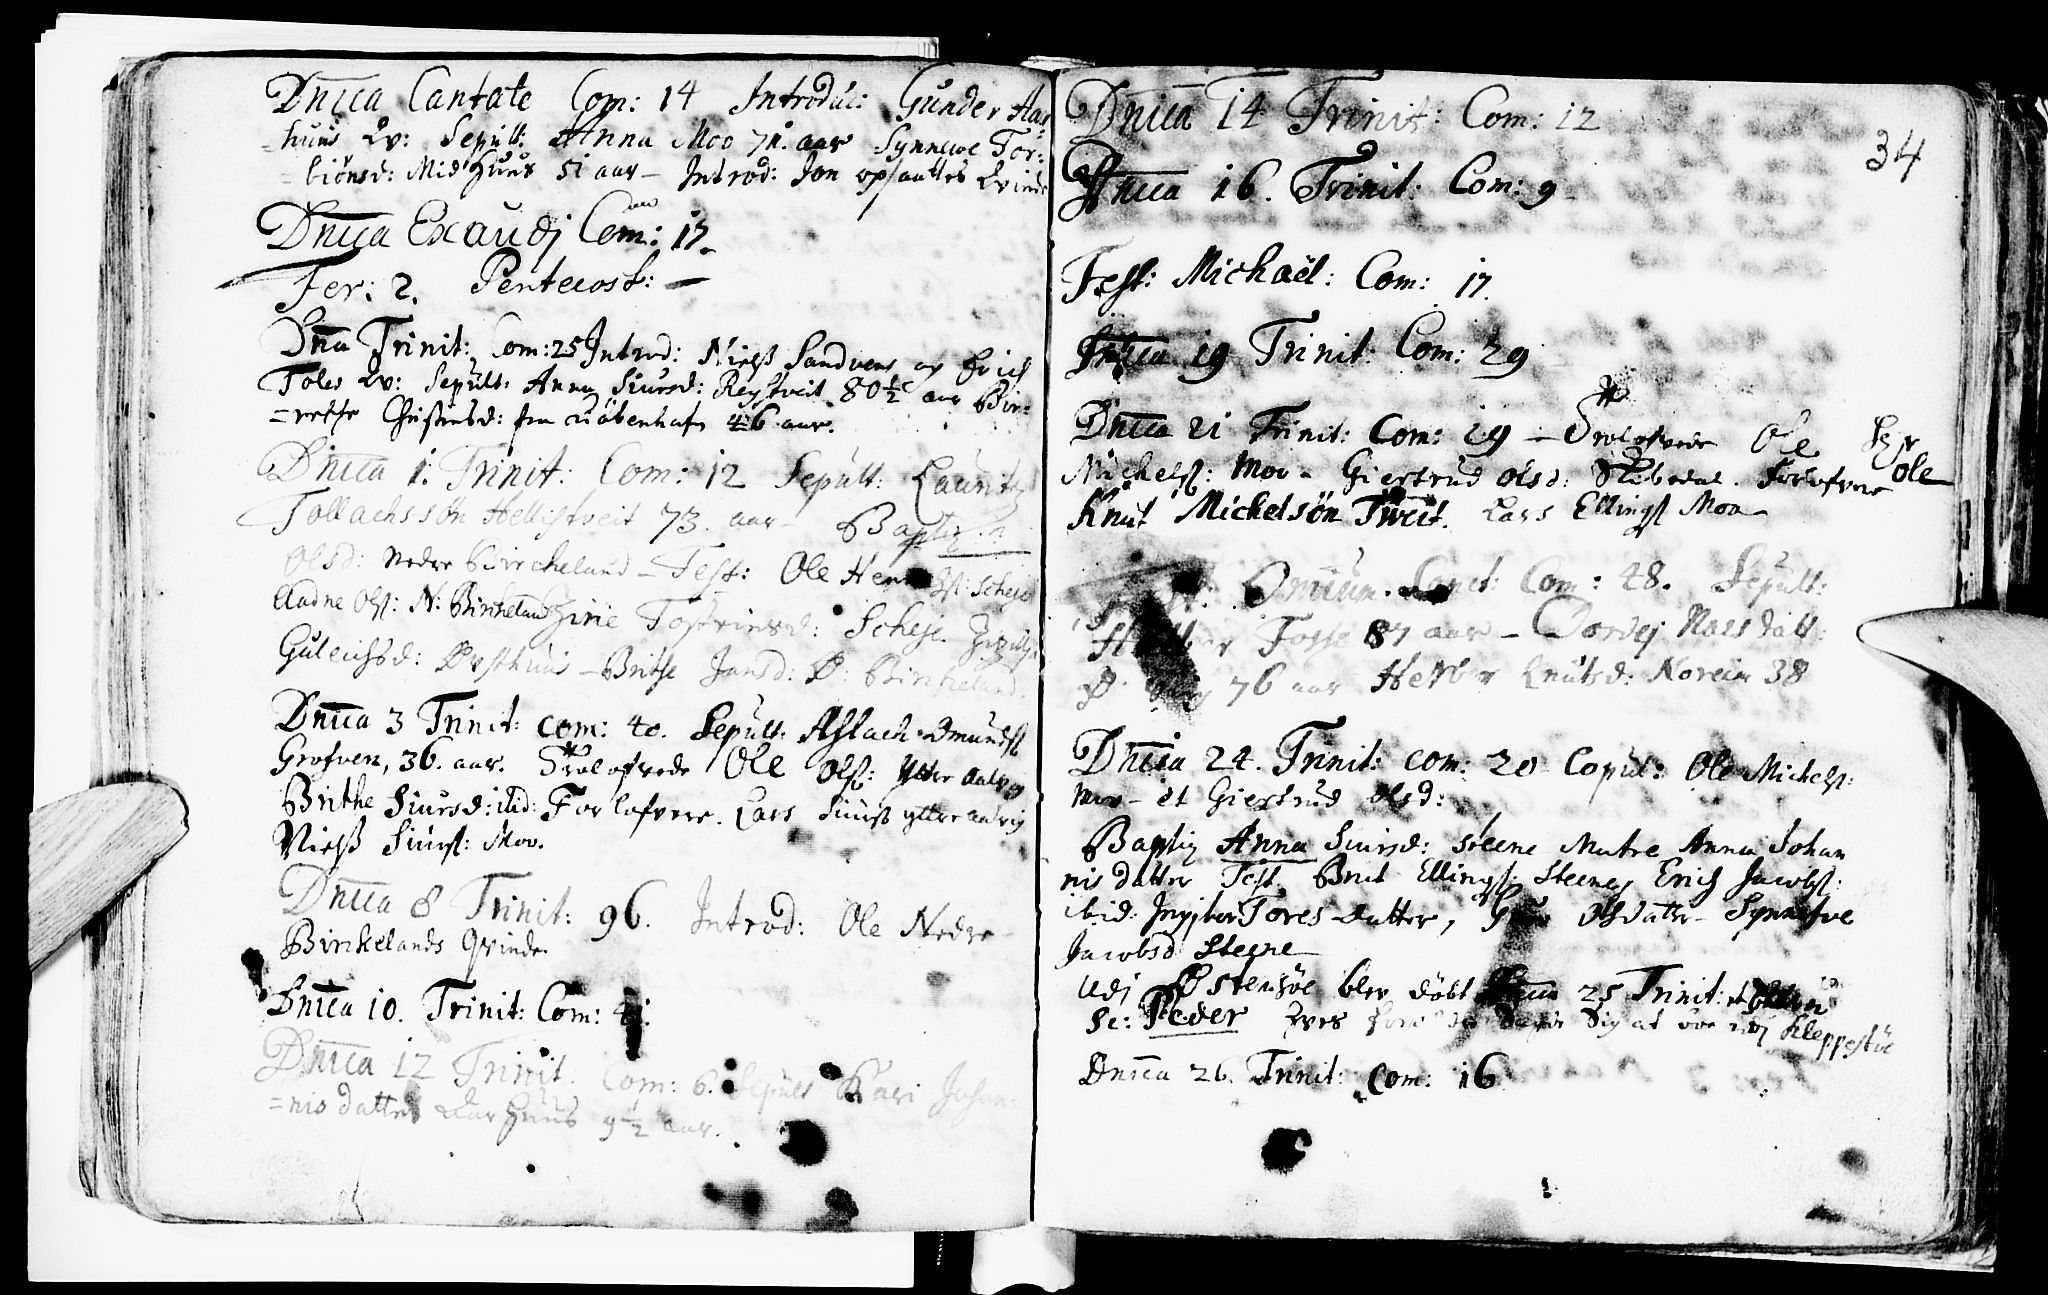 Dnica Cantate Com: 14 Introduc: Gunder Aar
=huus Qv: Sepult: Anna Moo 71. aar Synnewe Tor=
=biönsd: Midhuus 51 aar – Introd: Jon opsaattes Qvinde
Dnica Exaudj Com: 17.
Fer: 2. Pentecost: –
Dnica Trinit: Com: 25 Introd: Nielß Sandvens og Erich
Toles Qv: Sepult: Anna Siursd: Reystveit 80½ aar Bir=
=rethe Christensd: fra Kiöbenhafn 46 aar.
Dnica 1. Trinit: Com: 12 Sepult: Lauritz
Tollachssön Hellistveit 73. aar – Baptiz:
Olsd: Nedre Bircheland – Test: Ole Scheje
Aadne Olß: N: Bircheland Zirie Tostensd: Scheje
Guleichsd: Østhuus – Brithe Jansd: Ø: Bircheland.
Dnica 3 Trinit: Com: 40. Sepult: Aslach Omundß
Grofven, 36. aar. Trolofvede Ole Olß: Yttre Aalvig
Brithe Siursd: ibid: Forlofvere. Lars Siurß yttre aalvig
Nielß Siurß: Moo.
Dnica 8 Trinit: 96. Introd: Ole Nedre
Birckelands Qvinde.
Dnica 10. Trinit: Com:
Dnica 12 Trinit. Com: 6. Sepult Kari Johan=
=nis datter Aarhuus 9½ aar.
34
Dnica 14 Trinit: Com: 12
Dnica 16. Trinit: Com: 9
Fest: Michaël: Com: 17.
Dnica 19 Trinit: Com: 29
Dnica 21 Trinit: Com: 19 – Trolofvede Ole
Michelß: Moo – Giertrud Olsd: Forlofvere Ole
Knut Michelsön Tweit. Lars Ellingß Moo –
Omnium Sanct: Com: 48. Sepult:
Fosse 87 aar – Dordej Nazdatt:
76 aar Herbor Knutsd: Noreim 38
Dnica 24. Trinit: Com: 20 Copul: Ole Michelß:
Moo – et Giertrud Olsd:
Baptiz Anna Siursd: Steene Matre Anna Johan
nis datter Test. Brit Ellingß: Steene, Erich Jacobß:
ibid: Ingjbor Tores datter, Olsdatter – Synnefve
Jacobsd Steene
Udj Østensöe blev döbt 25 Trinit: et
Sc: Peder Sig at boe udj Kleppestöe
Dnica 26. Trinit: Com: 16